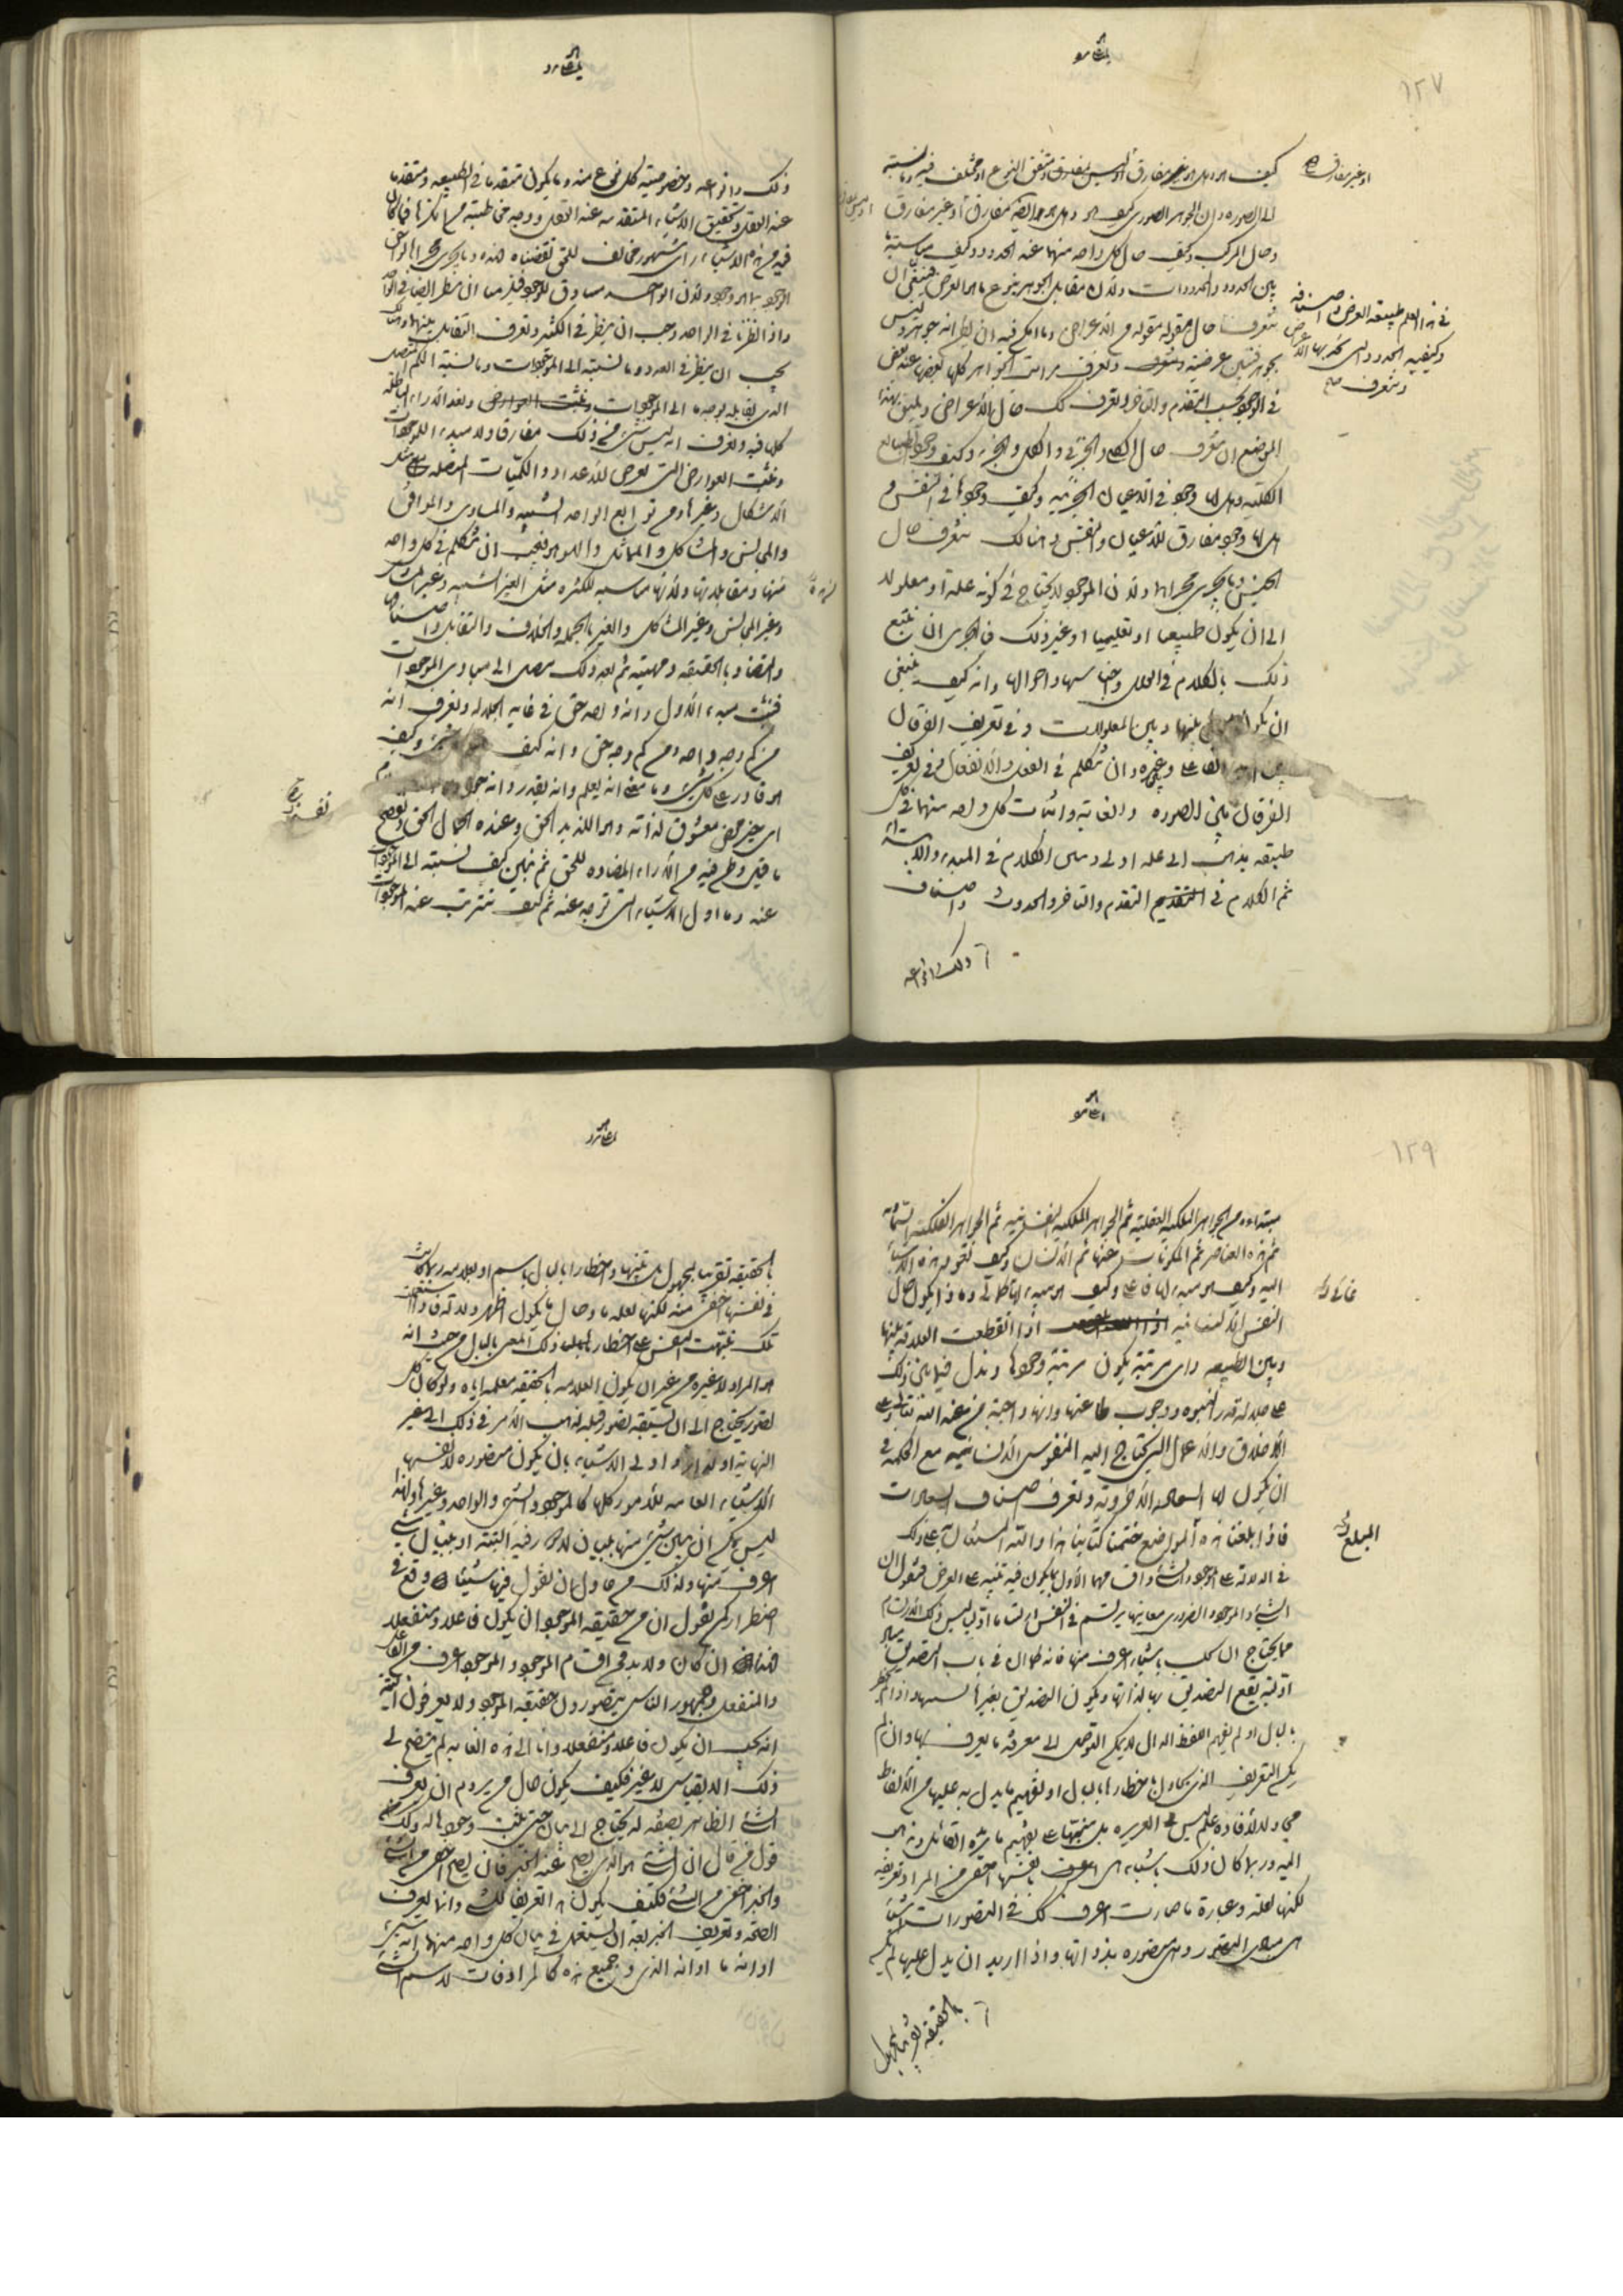 ١٢٧
كيف هو وهل هو غير مفارق او ليس بمفارق او متفق النوع او مختلف فيه وما نسبته
او غير مفارق
الى الصورة وان الجوهر الصوري كيف هو وهل هو ايضا مفارق او غير مفارق
وحال المركب وكيف حال كل واحد منهما عند الحدود وكيف مناسبة ما
بين الحدود والمحدودات ولان مقابل الجوهر بنوع ما هو العرض فينبغي ان
في هذا العلم طبيعة العرض واصنافه
وكيفية الحدود التي تحد بها الاعراض
ونتعرف
نتعرف حال مقولة مقولة من الاعراض وما امكن فيه ان يظن انه جوهر وليس
بجوهر فنبين عرضيته ونعرف مراتب الجواهر كلها بعضها عند بعض
في الوجود بحسب التقدم والتاخر ونعرف كك حال الاعراض ويليق بهذا
الموضع ان نتعرف حال الكلي والجزئي والكل والجزء وكيف وجود الطبايع
الكلية وهل لها وجود في الاعيان الجزئية وكيف وجودها في النفس و
هل لها وجود مفارق للاعيان والنفس وهنالك نتعرف حال
الجنس وما يجري مجراها ولان الموجود لا يحتاج في كونه علة او معلولا
الى ان يكون طبيعيا او تعليميا او غير ذلك فبالحري ان نتبع
ذلك بالكلام في العلل واجناسها واحوالها وانه كيف ينبغي
ان يكون بينها وبين المعلولات وفي تعريف الفرقان
بين الفاعل وغيره وان نتكلم في الفعل والانفعال وفي تعريف
الفرقان بين الصورة والغاية واثبات كل واحد منهما في كل
طبقة يذهب الى علة اولى ونبين الكلام في المبدء والابتداء
ثم الكلام في التقدم والتاخر والحدوث واصناف
ذلك وانواعه
ذلك وانواعه وخصوصية كل نوع منه وما يكون متقدما في الطبيعة ومتقدما
عند العقل وتحقيق الاشياء المتقدمة عند العقل ووجه مخاطبة من انكرها فما كان
فيه من هذه الاشياء راي مشهور مخالف للحق نقضناه فهذه وما يجري مجراها لواحق
الوجود بما هو وجود ولان الواحد مساوق للوجود فيلزمنا ان ننظر ايضا في الواحد
واذا نظرنا في الواحد وجب ان ننظر في الكثير ونعرف التقابل بينهما وهناك
يجب ان ننظر في العدد وما نسبته الى الموجودات وما نسبة الكم المتصل
الذي يقابله بوجه ما الى الموجودات ونعد الاراء الباطلة
كلها فيه ونعرف انه ليس شيء من ذلك مفارقا ولا مبدء للموجودات
ونثبت العوارض التي تعرض للاعداد والكميات المتصلة مثل
الاشكال وغيرها ومن توابع الواحد الشبيه والمساوي والموافق
والمجانس والمشاكل والمماثل والهو هو فيجب ان نتكلم في كل واحد
منها ومقابلاتها وانها مناسبة للكثرة مثل الغير الشبيه وغير المساوي
وغير المجانس وغير المشاكل والغير بالجملة والخلاف والتقابل واصنافها
والتضاد بالحقيقة ومهيته ثم بعد ذلك ننتقل الى مبادي الموجودات
فنثبت المبدء الاول وانه واحد حق في غاية الجلالة ونعرف انه
من كم وجه واحد ومن كم وجه حق وانه كيف شيء وكيف
هو قادر على كل شيء وما معنى انه يعلم وانه يقدر وانه جواد
اي خير محض معشوق لذاته وهو اللذيذ الحق وعنده الجمال الحق ونفسخ
ما قيل وظن فيه من الاراء المضادة للحق ثم نبين كيف نسبته الى الموجودات
عنه وما اول الاشياء التي توجد عنه ثم كيف تترتب عنه الموجودات
١٢٩
مبتداة من الجواهر الملكية العقلية ثم الجواهر الملكية النفسانية ثم الجواهر الفلكية السماوية
ثم هذه العناصر ثم المكونات عنها ثم الانسان وكيف تعود هذه الاشياء
اليه وكيف هو مبدء لها فاعلي وكيف هو مبدء لها كمالي وماذا يكون حال
غائي
النفس الانسانية اذا انقطعت العلاقة بينها
وبين الطبيعة واي مرتبة يكون مرتبة وجودها وندل فيما بين ذلك
على جلالة قدر النبوة ووجوب طاعتها وانها واجبة من عند الله تعالى وعلى
الاخلاق والاعمال التي يحتاج اليه النفوس الانسانية مع الحكمة في
ان يكون لها السعادة الاخروية ونعرف اصناف السعادات
فاذا بلغنا هذا الموضع ختمنا كتابنا هذا والله المستعان به على ذلك
المبلغ
في الدلالة على الموجود والشيء واقسامهما الاول بما يكون فيه تنبيه على الغرض فنقول ان
الشيء والموجود والضروري معانيها يرتسم في النفس ارتساما اوليا ليس ذلك الارتسام
مما يحتاج الى ان يجلب باشياء اعرف منها فانه كما ان في باب التصديق مبادي
اولية يقع التصديق بها لذاتها ويكون التصديق بغيرها بسببها واذا لم يخطر
بالبال او لم يفهم اللفظ الدال لم يمكن التوصل الى معرفة ما يعرف بها وان لم
يكن التعريف الذي يحاول اخطارها بالبال او تفهيم ما يدل به عليها من الالفاظ
محاولا لافادة علم ليس في الغريزة بل منبها على تفهيم ما يريده القائل ويذهب
اليه وربما كان ذلك باشياء هي في انفسها اخفى من المراد تعريفه
لكنها لعلة وعبارة ما صارت اعرف كك في التصورات اشياء
هي مبادي التصور وهي متصورة بذواتها واذا اريد ان يدل عليها لم يكن
بالحقيقة تعريفا لمجهول
بالحقيقة تعريفا لمجهول بل تنبيها واخطارا بالبال باسم او بعلامة ربما كانت
في نفسها اخفى منه لكنها لعلة ما وحال ما يكون اظهر دلالة فاذا استعملت
تلك تنبهت النفس على اخطار ذلك المعنى بالبال من حيث انه
هو المراد لا غيره من غير ان يكون العلامة بالحقيقة معلمة اياه ولو كان كل
تصور يحتاج الى ان يسبقه تصور قبله لذهب الامر في ذلك الى غير
النهاية او لدار واولى الاشياء بان يكون متصورة لانفسها
الاشياء العامة للامور كلها كالموجود والشيء والواحد وغيرها ولهذا
ليس يمكن ان يبين شيء منها ببيان لا دور فيه البتة او ببيان شيء
اعرف منها ولذلك من حاول ان يقول فيها شيئا وقع في
اضطراب كمن يقول ان من حقيقة الموجود ان يكون فاعلا او منفعلا
وهذا ان كان ولا بد فمن اقسام الموجود والموجود اعرف من الفاعل
والمنفعل وجمهور الناس يتصورون حقيقة الموجود ولا يعرفون البتة
انه يجب ان يكون فاعلا او منفعلا وانا الى هذه الغاية لم يتضح لي
ذلك الا بقياس لا غير فكيف يكون حال من يروم ان يعرف
الشيء الظاهر بصفة له يحتاج الى بيان حتى يثبت وجودها له وكذلك
قول من قال ان الشيء هو الذي يصح عنه الخبر فان يصح اخفى من الشيء
والخبر اخفى من الشيء فكيف يكون هذا تعريفا للشيء وانما يعرف
الصحة وتعريف الخبر بعد ان يستعمل في بيان كل واحد منهما انه شيء
او انه ما او انه الذي وجميع هذه كالمرادفات لاسم الشيء